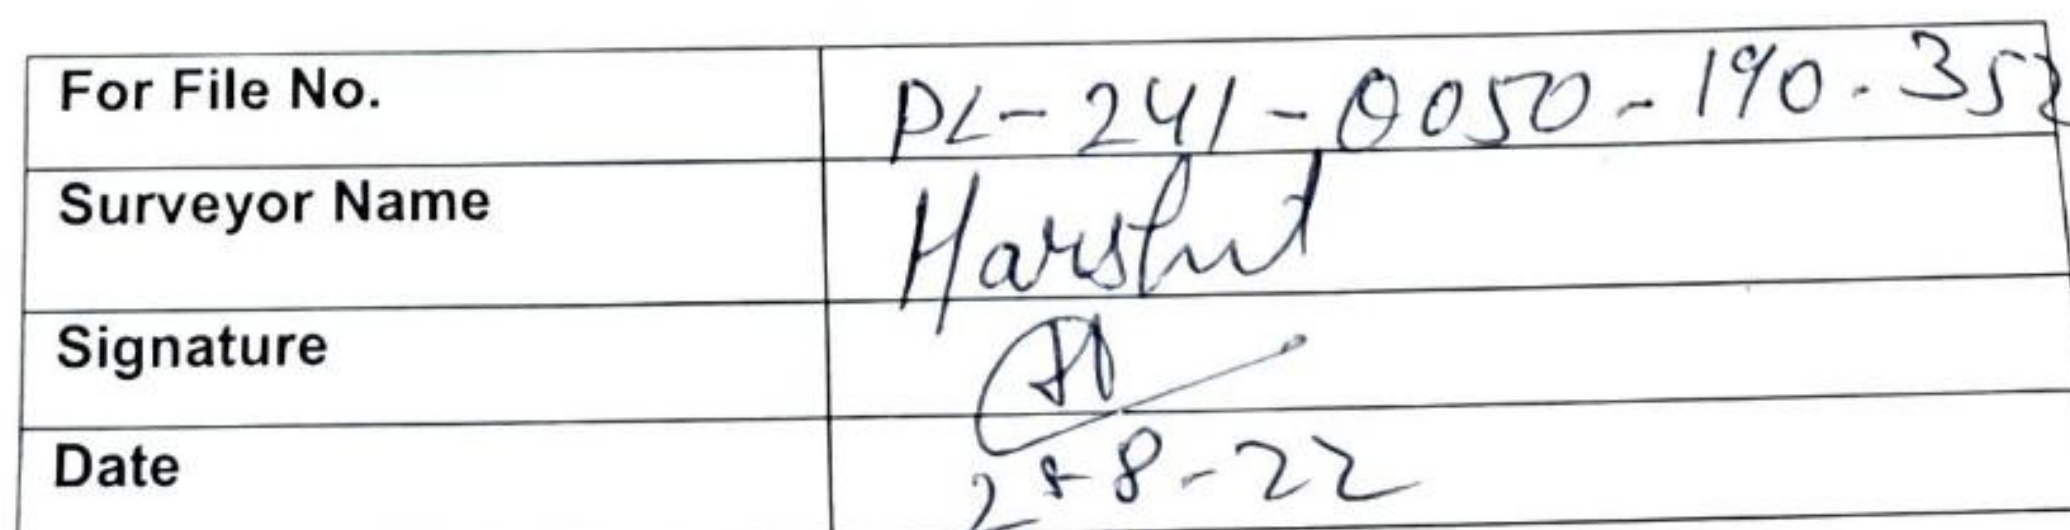 For File No. PL-241-0050-190-352
Surveyor Name Harshit
Signature
Date 25-8-22